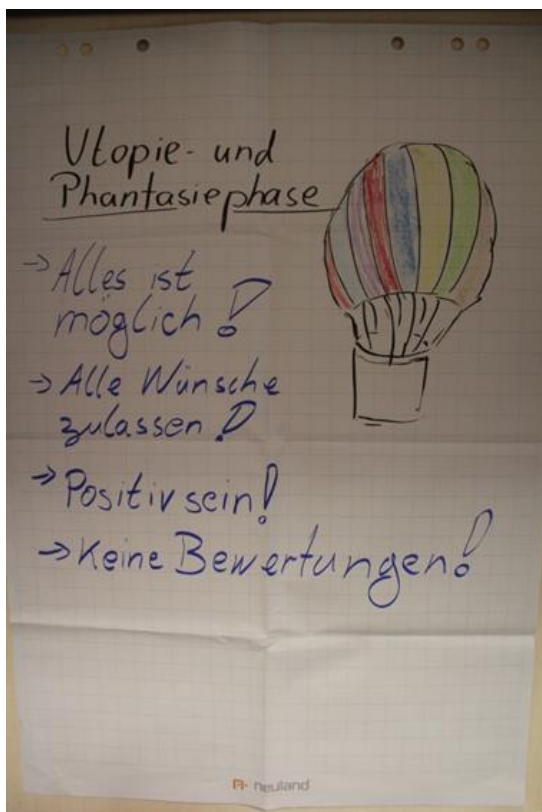 Utopie- und
Phantasiephase
→ Alles ist
möglich!
→ Alle Wünsche
zulassen!
→ Positiv sein!
→ Keine Bewertungen!
neuland